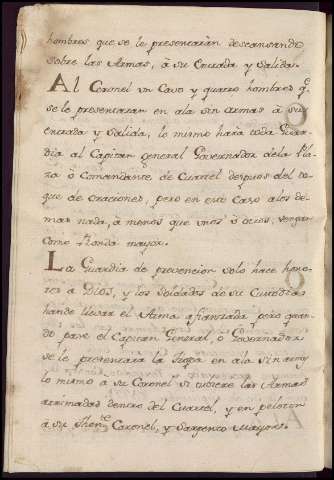 hombres que se le presentaràn descansando
sobre las Armas, à su Entrada y Salida.
Al Coronel un Cavo y quatro hombres q.e
se le presentaran en ala sin armas à su
entrada y salida, lo mismo harà toda Guar-
dia al Capitan General Governador dela Pla-
za ò Comandante de Cuartel despues del to-
que de oraciones, pero en este Cazo alos de-
mas nada, à menos que unos ò otros, vengan
como Ronda mayor.
La Guardia de prevencion solo hace hono-
res à Dios, y los Soldados de su Custodia
hande llevar el Arma afianzada pero quan-
do pase el Capitan General, o Governador
se le presentarà la tropa en ala sin arms
lo mismo a su Coronel si tubiere las Armas
arrimadas dentro del Cuartel, y en peloton
a su Then.te Coronel, y Sargento Mayor.